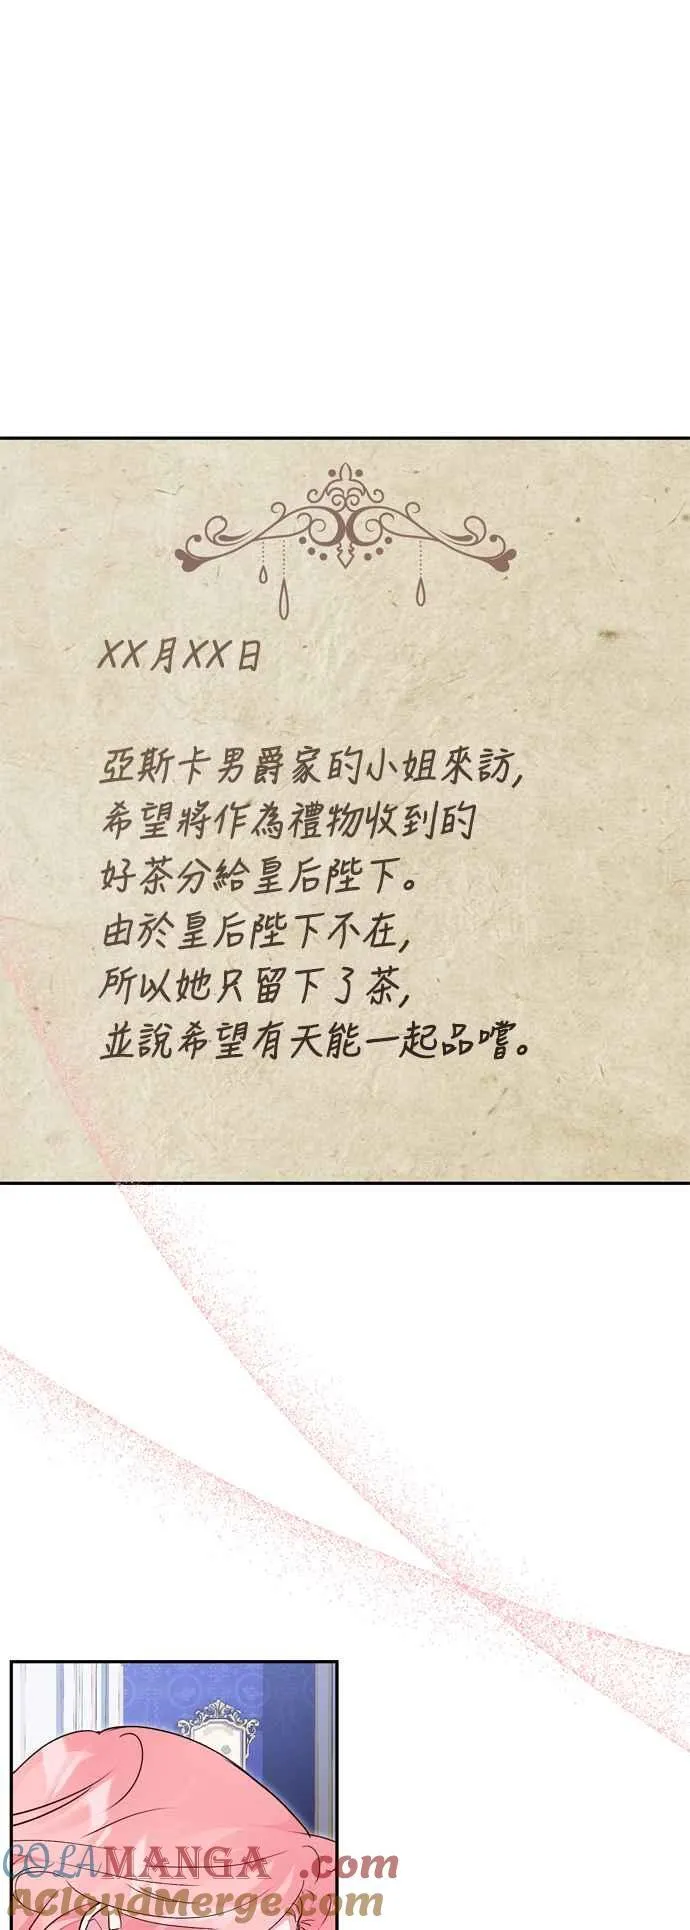 XX月XX日
亞斯卡男爵家的小姐來訪,
希望將作為禮物收到的
好茶分給皇后陛下。
由於皇后陛下不在,
所以她只留下了茶,
並說希望有天能一起品嚐。
COLAMANGA.com
AcloudMerge.com